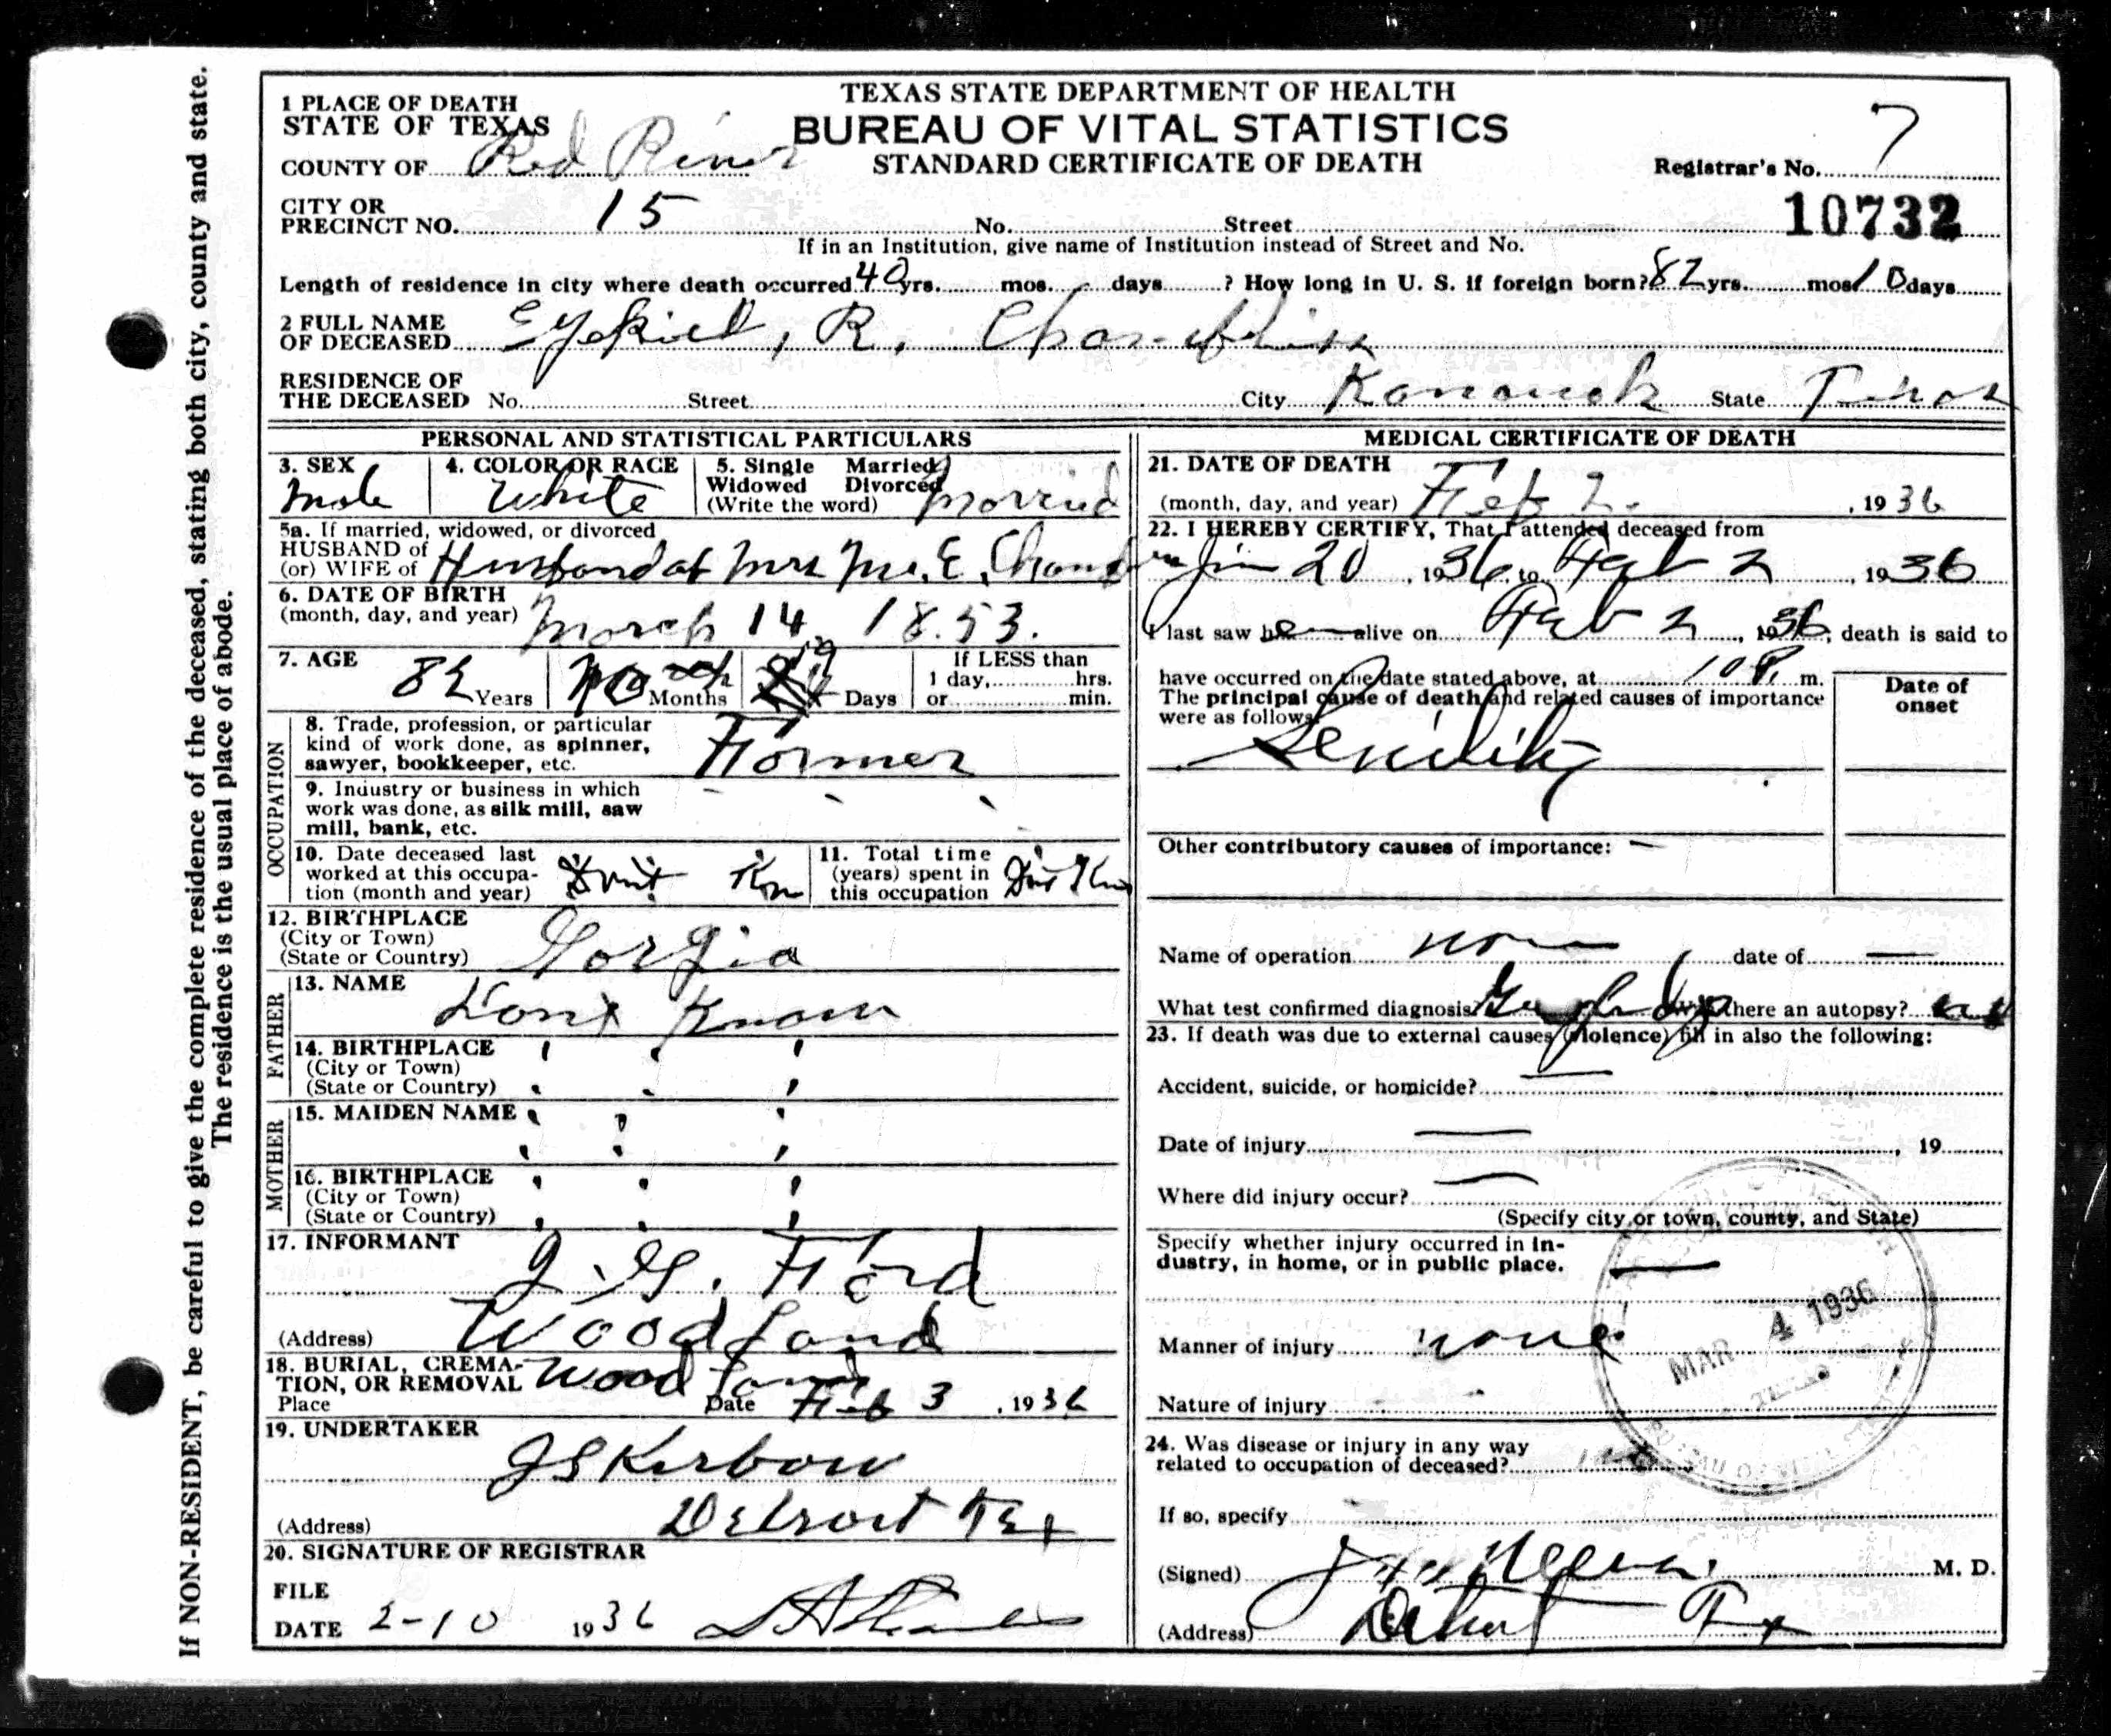 TEXAS STATE DEPARTMENT OF HEALTH
BUREAU OF VITAL STATISTICS
STANDARD CERTIFICATE OF DEATH
1 PLACE OF DEATH
STATE OF TEXAS
COUNTY OF Red River
Registrar's No. 7
10732
CITY OR
PRECINCT NO. 15 No. Street
If in an Institution, give name of Institution instead of Street and No.
Length of residence in city where death occurred 40 yrs. mos. days ? How long in U. S. if foreign born? 82 yrs. mos 10 days
2 FULL NAME
OF DECEASED Ezekiel, R.
RESIDENCE OF
THE DECEASED No. Street City Kanawah State Texas
PERSONAL AND STATISTICAL PARTICULARS
3. SEX
Male
4. COLOR OR RACE
White
5. Single Married
Widowed Divorced
(Write the word) Married
5a. If married, widowed, or divorced
HUSBAND of
(or) WIFE of Husband of Mrs M. E.
6. DATE OF BIRTH
(month, day, and year) March 14 18.53.
7. AGE
82 Years 10 Months 19 Days
If LESS than
1 day, hrs.
or min.
OCCUPATION
8. Trade, profession, or particular
kind of work done, as spinner,
sawyer, bookkeeper, etc. Farmer
9. Industry or business in which
work was done, as silk mill, saw
mill, bank, etc.
10. Date deceased last
worked at this occupa-
tion (month and year) Dont Kno
11. Total time
(years) spent in
this occupation Dont Kno
12. BIRTHPLACE
(City or Town)
(State or Country) Gorgia
FATHER
13. NAME
Dont Know
14. BIRTHPLACE
(City or Town)
(State or Country)
MOTHER
15. MAIDEN NAME
16. BIRTHPLACE
(City or Town)
(State or Country)
17. INFORMANT
J. G. Ford
(Address) Woodland
18. BURIAL, CREMA-
TION, OR REMOVAL Woodland
Place Date Feb 3, 1936
19. UNDERTAKER
J S Kerbow
(Address) Detroit Tex
20. SIGNATURE OF REGISTRAR
FILE
DATE 2-10 1936
MEDICAL CERTIFICATE OF DEATH
21. DATE OF DEATH
(month, day, and year) Feb 2. , 1936
22. I HEREBY CERTIFY, That I attended deceased from
20 , 1936, to Feb 2 , 1936
I last saw h alive on Feb 2 , 1936, death is said to
have occurred on the date stated above, at 10 P. m.
The principal cause of death and related causes of importance
were as follows:
Senility
Date of
onset
Other contributory causes of importance: —
Name of operation none date of —
What test confirmed diagnosis? Was there an autopsy?
23. If death was due to external causes (violence) fill in also the following:
Accident, suicide, or homicide? —
Date of injury — , 19
Where did injury occur? —
(Specify city or town, county, and State)
Specify whether injury occurred in in-
dustry, in home, or in public place. —
Manner of injury none
Nature of injury
MAR 4 1936
TEXAS
24. Was disease or injury in any way
related to occupation of deceased?
If so, specify
(Signed) M. D.
(Address) Detroit Tx
If NON-RESIDENT, be careful to give the complete residence of the deceased, stating both city, county and state.
The residence is the usual place of abode.